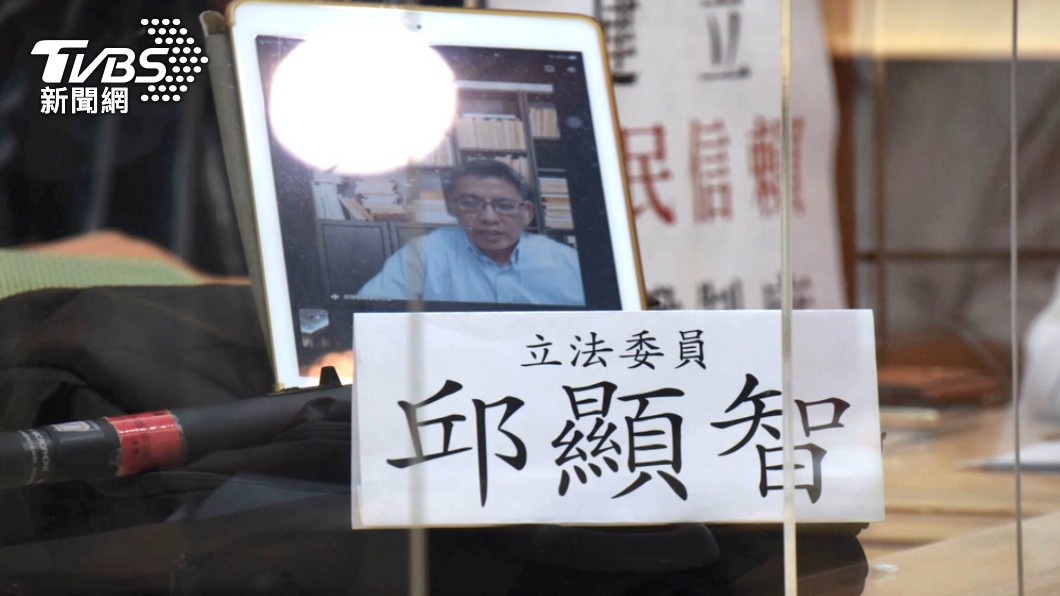 TVBS
新聞網
建立
民信賴
立法委員
邱顯智